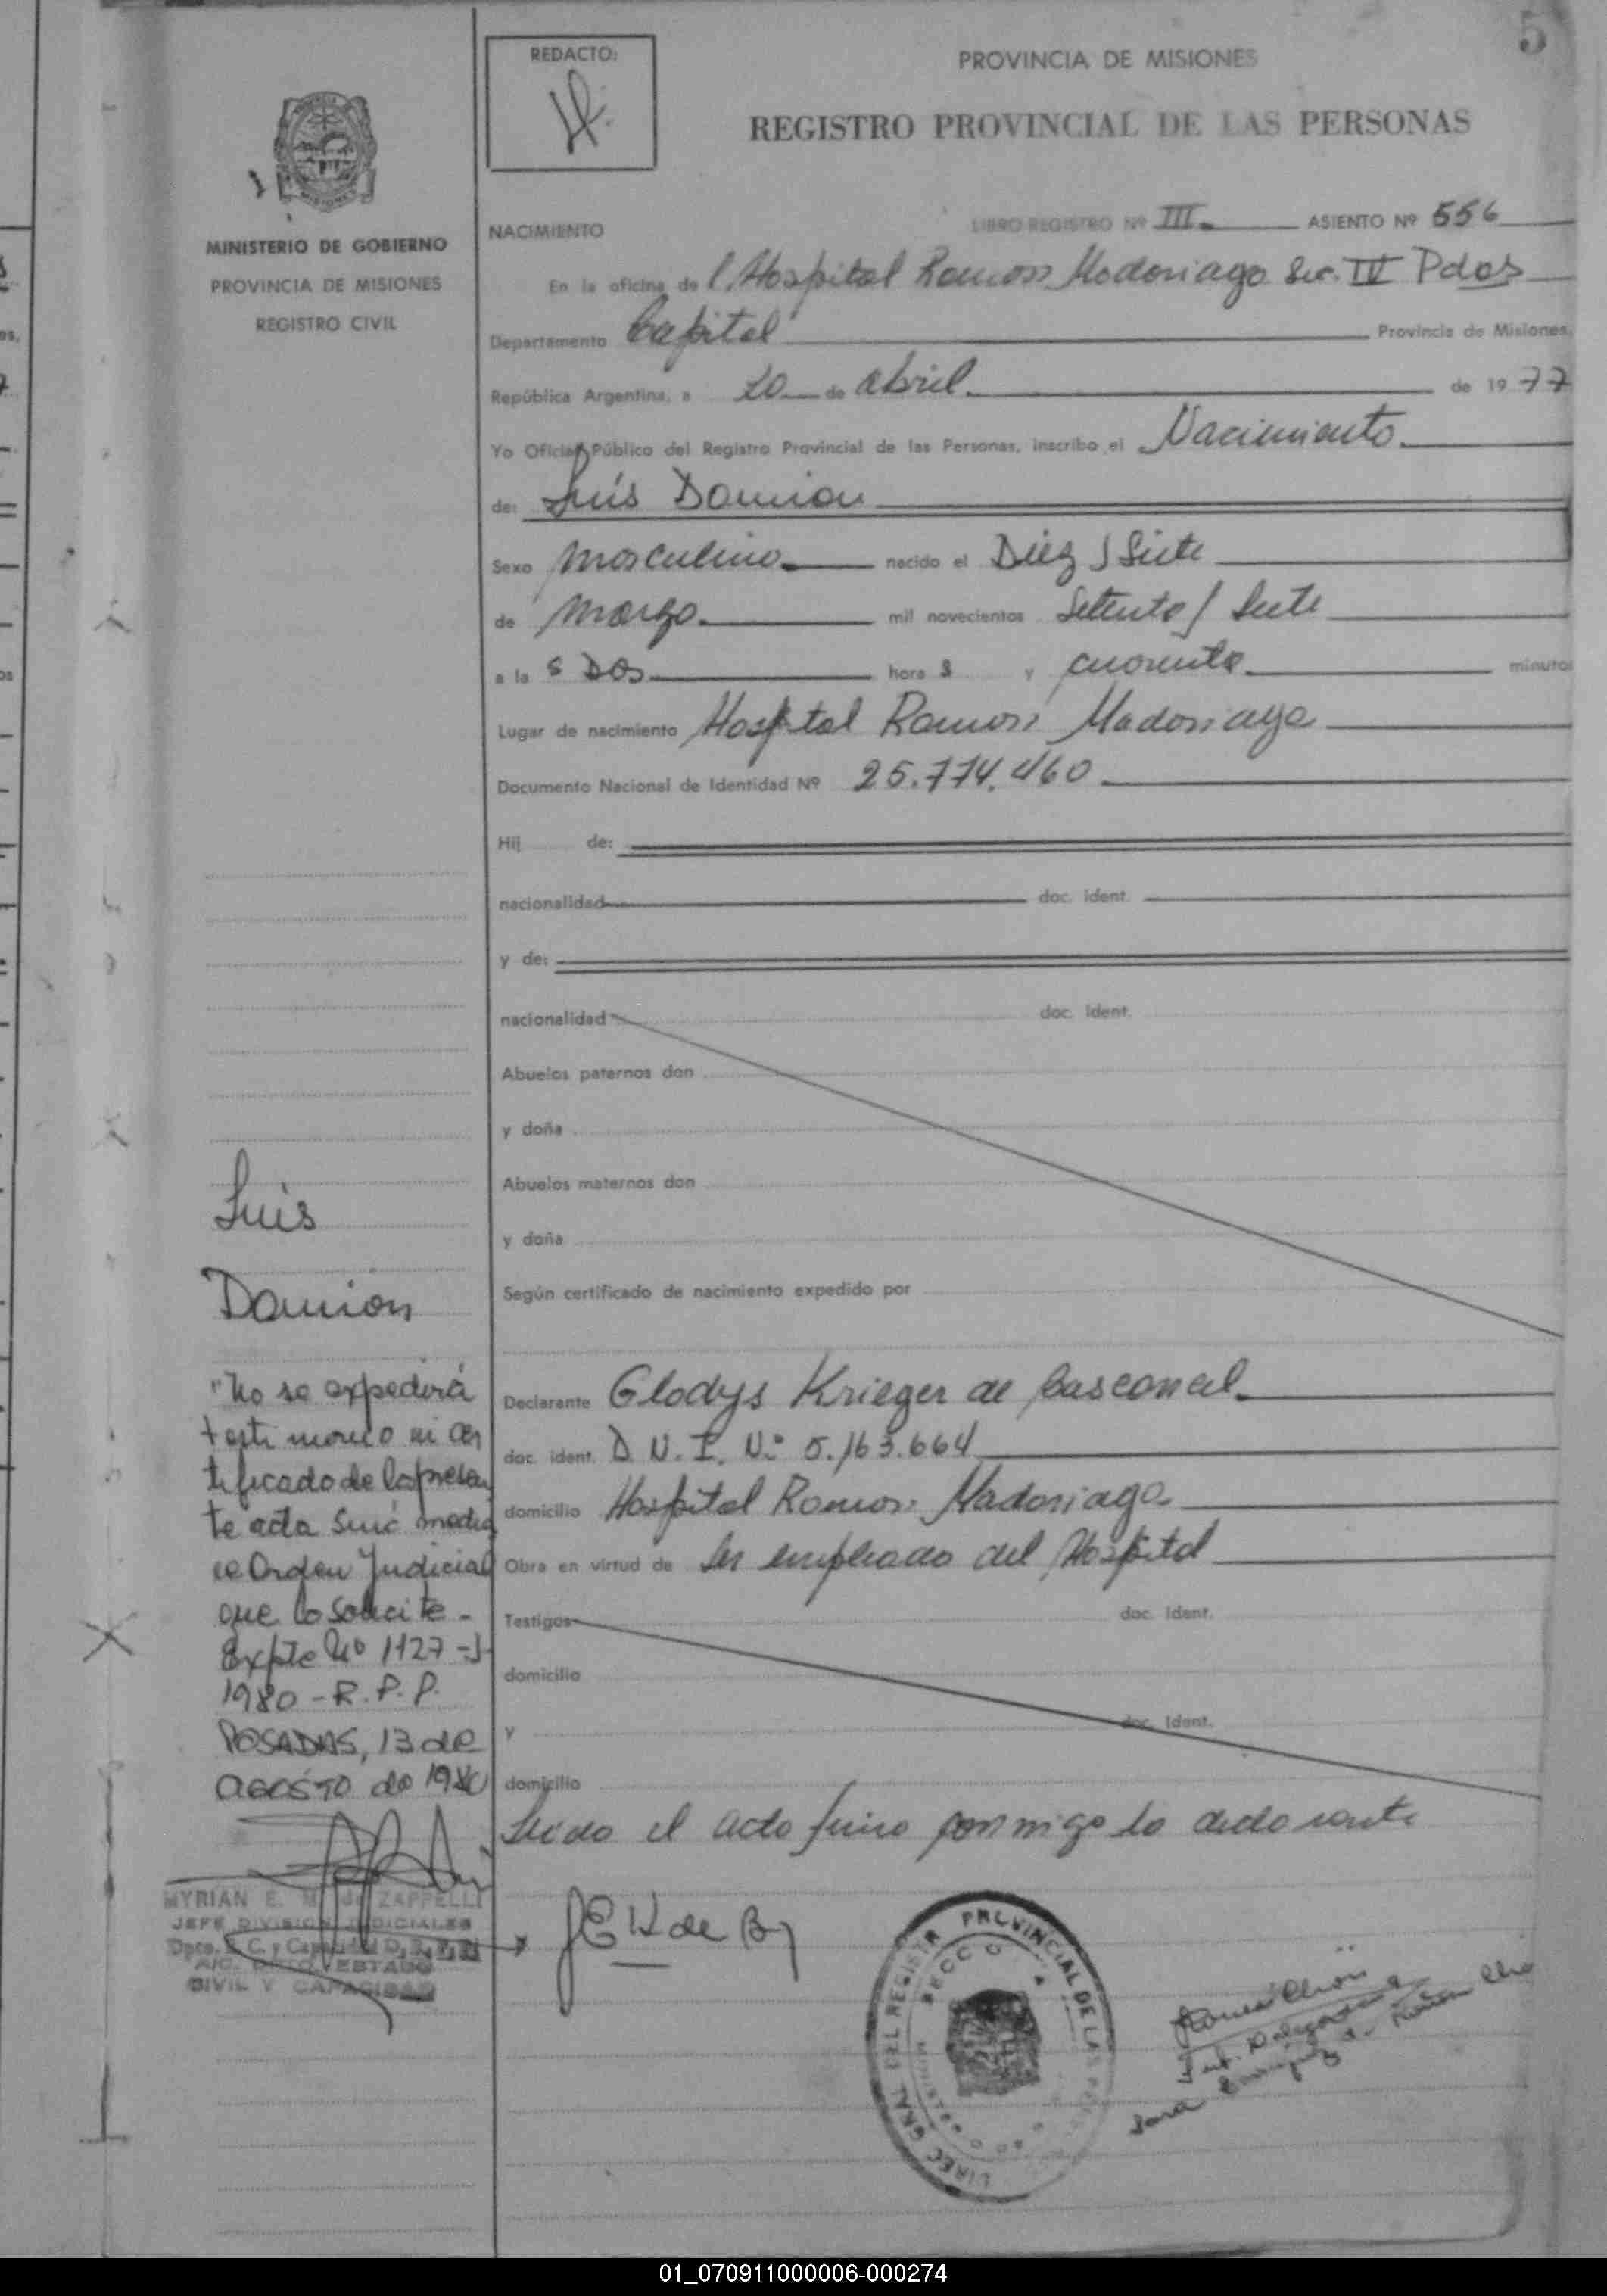 5
REDACTO:
PROVINCIA DE MISIONES
REGISTRO PROVINCIAL DE LAS PERSONAS
MINISTERIO DE GOBIERNO
PROVINCIA DE MISIONES
REGISTRO CIVIL
NACIMIENTO LIBRO REGISTRO Nº III ASIENTO Nº 556
En la oficina del Hospital Ramon Madariaga Sec. IV Pdas
Departamento Capital Provincia de Misiones,
República Argentina, a 20 de abril de 1977
Yo Oficial Público del Registro Provincial de las Personas, inscribo el Nacimiento
de: Luis Damian
Sexo masculino nacido el Diez y Siete
de marzo mil novecientos Setenta y Siete
a las Dos horas y cuarenta minutos
Lugar de nacimiento Hospital Ramon Madariaga
Documento Nacional de Identidad Nº 25.774.460
Hij de:
nacionalidad doc. ident.
y de:
nacionalidad doc. ident.
Abuelos paternos don
y doña
Abuelos maternos don
y doña
Según certificado de nacimiento expedido por
Declarante Gladys Krieger de
doc. ident. D.N.I. Nº 5.163.664
domicilio Hospital Ramon Madariaga
Obra en virtud de ser empleada del Hospital
Testigos doc. ident.
domicilio
y doc. ident.
domicilio
Leida el acta firma conmigo la declarante
Luis
Damian
"No se expedirá
testimonio ni cer
tificado de la presen
te acta sinó media
te Orden Judicial
que lo solicite -
Expte Nº 1127-J-
1980 - R.P.P.
POSADAS, 13 de
AGOSTO de 1980
MYRIAN E. M. de ZAPPELLI
JEFE DIVISION JUDICIALES
Dpto. E. C. y Capacidad
A/C. DPTO. ESTADO
CIVIL Y CAPACIDAD
DIREC GRAL DEL REGISTR PROVINCIAL DE LAS
01_070911000006-000274